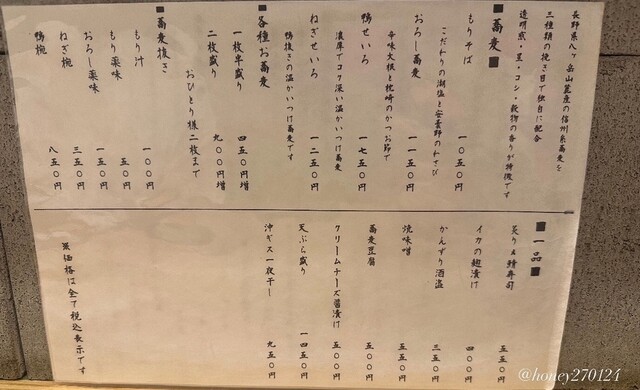 長野県八ヶ岳山麓産の信州系蕎麦を
三種類の挽き目で独自に配合
透明感・星・コシ・穀物の香りが特徴です
■蕎麦■
もりそば 一〇五〇円
こだわりの湖塩と安曇野のわさび
おろし蕎麦 一一五〇円
辛味大根と枕崎のかつお節で
鴨せいろ 一七五〇円
濃厚でコク深い温かいつけ蕎麦
ねぎせいろ 一二五〇円
鴨抜きの温かいつけ蕎麦です
■各種お蕎麦
一枚半盛り 四五〇円増
二枚盛り 九〇〇円増
おひとり様二枚まで
■蕎麦抜き
もり汁 一〇〇円
もり薬味 五〇円
おろし薬味 一五〇円
ねぎ椀 三五〇円
鴨椀 八五〇円
■一品■
炙り〆鯖寿司 五五〇円
イカの麹漬け 四〇〇円
かんずり酒盗 三五〇円
焼味噌 五五〇円
蕎麦豆腐 五〇〇円
クリームチーズ醤漬け 五〇〇円
天ぷら盛り 一四五〇円
沖ギス一夜干し 九五〇円
※価格は全て税込表示です
@honey270124